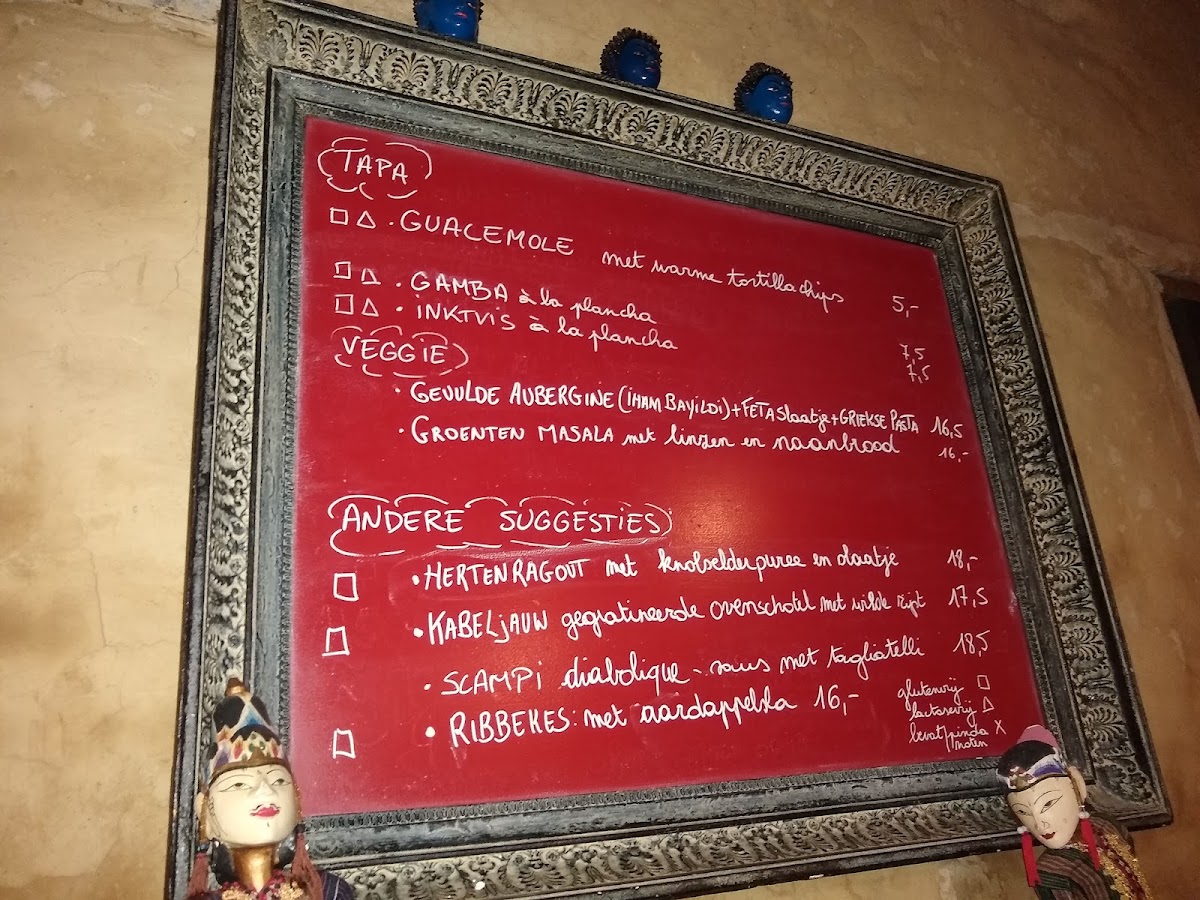 TAPA
□ △ · GUACEMOLE met warme tortillachips 5,-
□ △ · GAMBA à la plancha 7,5
□ △ · INKTVIS à la plancha 7,5
VEGGIE
· GEVULDE AUBERGINE (IHAM BAYILDI) + FETA slaatje + GRIEKSE PASTA 16,5
· GROENTEN MASALA met linzen en naanbrood 16,-
ANDERE SUGGESTIES
□ · HERTENRAGOUT met knolselderpuree en slaatje 18,-
□ · KABELJAUW gegratineerde ovenschotel met wilde rijst 17,5
· SCAMPI diabolique-saus met tagliatelli 18,5
□ · RIBBEKES: met aardappelsla 16,-
glutenvrij □
lactosevrij △
bevat/pinda X
noten